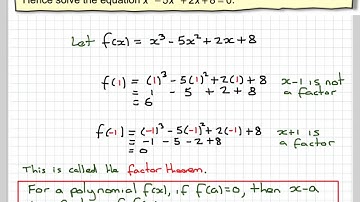 Hence solve the equation x³ - 5x² + 2x + 8 = 0.
Let f(x) = x³ - 5x² + 2x + 8
f(1) = (1)³ - 5(1)² + 2(1) + 8 x-1 is not
= 1 - 5 + 2 + 8 a factor
= 6
f(-1) = (-1)³ - 5(-1)² + 2(-1) + 8 x+1 is
= -1 - 5 - 2 + 8 a factor
= 0
This is called the factor theorem.
For a polynomial f(x), if f(a)=0, then x-a